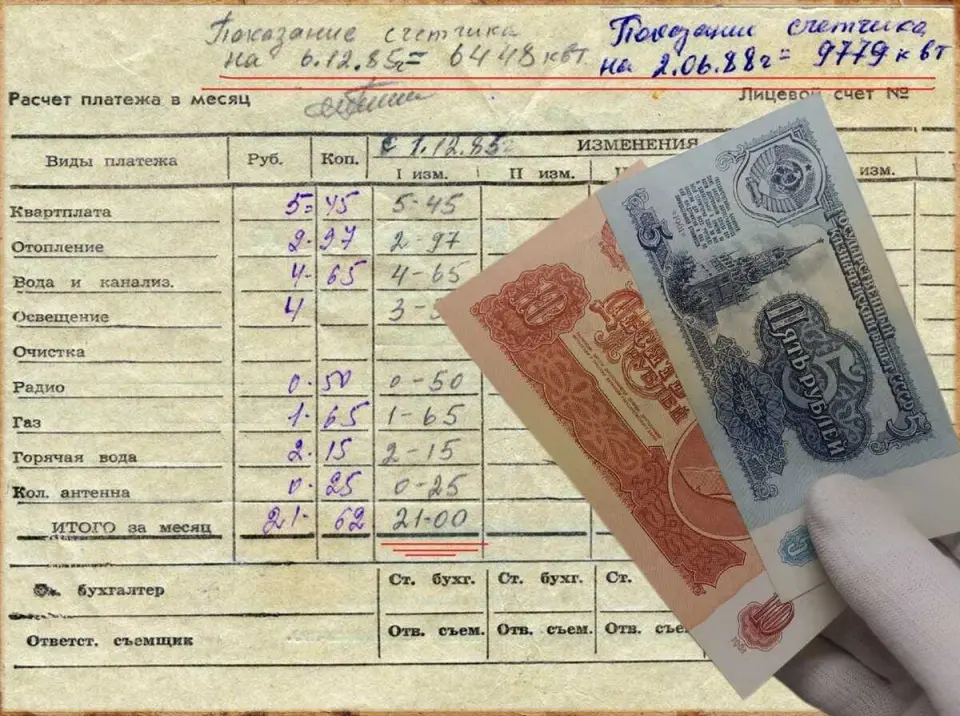 Показание счетчика
на 6.12.85г= 6448 квт
Показание счетчика
на 2.06.88г= 9779 квт
Расчет платежа в месяц
Лицевой счет №
Виды платежа Руб. Коп. с 1.12.85г ИЗМЕНЕНИЯ
I изм. II изм. изм.
Квартплата 5= 45 5-45
Отопление 2. 97 2-97
Вода и канализ. 4- 65 4-65
Освещение 4 3-
Очистка
Радио 0. 50 0-50
Газ 1. 65 1-65
Горячая вода 2. 15 2-15
Кол. антенна 0. 25 0-25
ИТОГО за месяц 21- 62 21-00
бухгалтер Ст. бухг. Ст. бухг. Ст.
Ответст. съемщик Отв. съем. Отв. съем. Отв.
10
ДЕСЯТЬ
РУБЛЕЙ
5
ГОСУДАРСТВЕННЫЙ
КАЗНАЧЕЙСКИЙ БИЛЕТ СССР
ПЯТЬ РУБЛЕЙ
5